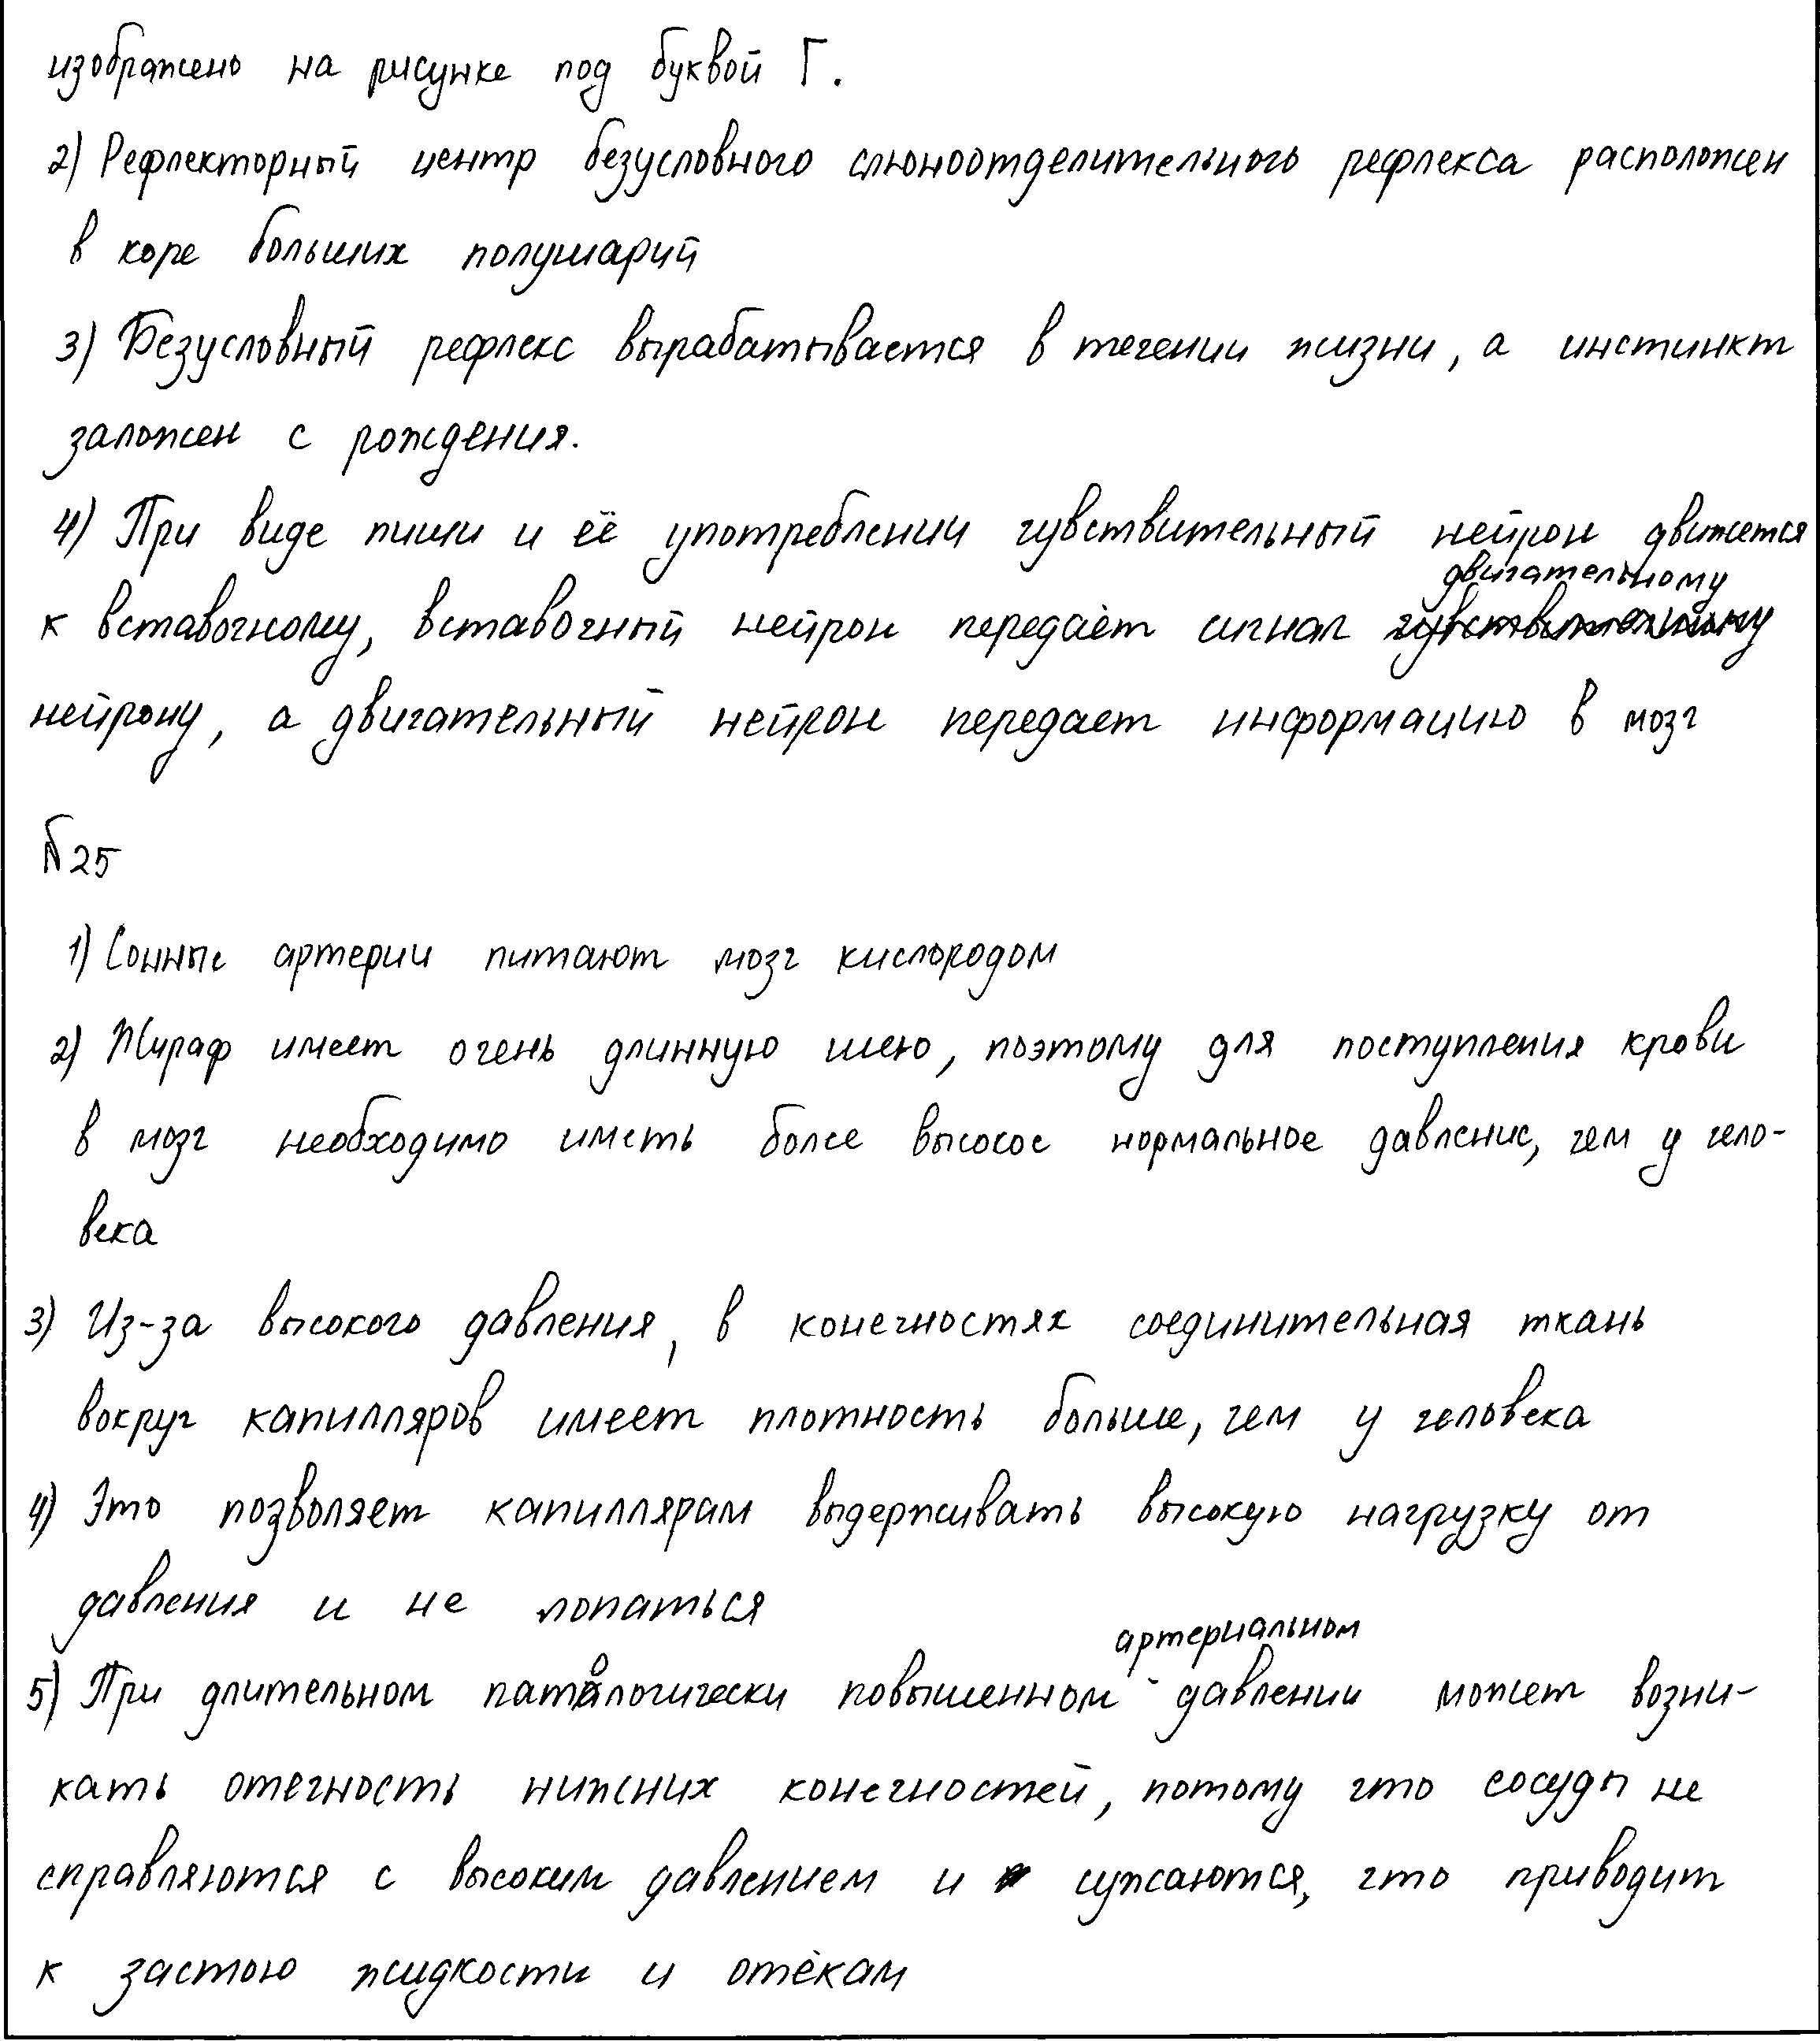 изображено на рисунке под буквой Г.
2) Рефлекторный центр безусловного слюноотделительного рефлекса расположен
в коре больших полушарий
3) Безусловный рефлекс вырабатывается в течении жизни, а инстинкт
заложен с рождения.
4) При виде пищи и её употреблении чувствительный нейрон движется
к вставочному, вставочный нейрон передаёт сигнал двигательному
нейрону, а двигательный нейрон передает информацию в мозг
№25
1) Сонные артерии питают мозг кислородом
2) Жираф имеет очень длинную шею, поэтому для поступления крови
в мозг необходимо иметь более высосое нормальное давление, чем у чело-
века
3) Из-за высокого давления, в конечностях соединительная ткань
вокруг капилляров имеет плотность больше, чем у человека
4) Это позволяет капиллярам выдерживать высокую нагрузку от
давления и не лопаться
5) При длительном патологически повышенном артериальном давлении может возни-
кать отечность нижних конечностей, потому что сосуды не
справляются с высоким давлением и сужаются, что приводит
к застою жидкости и отёкам